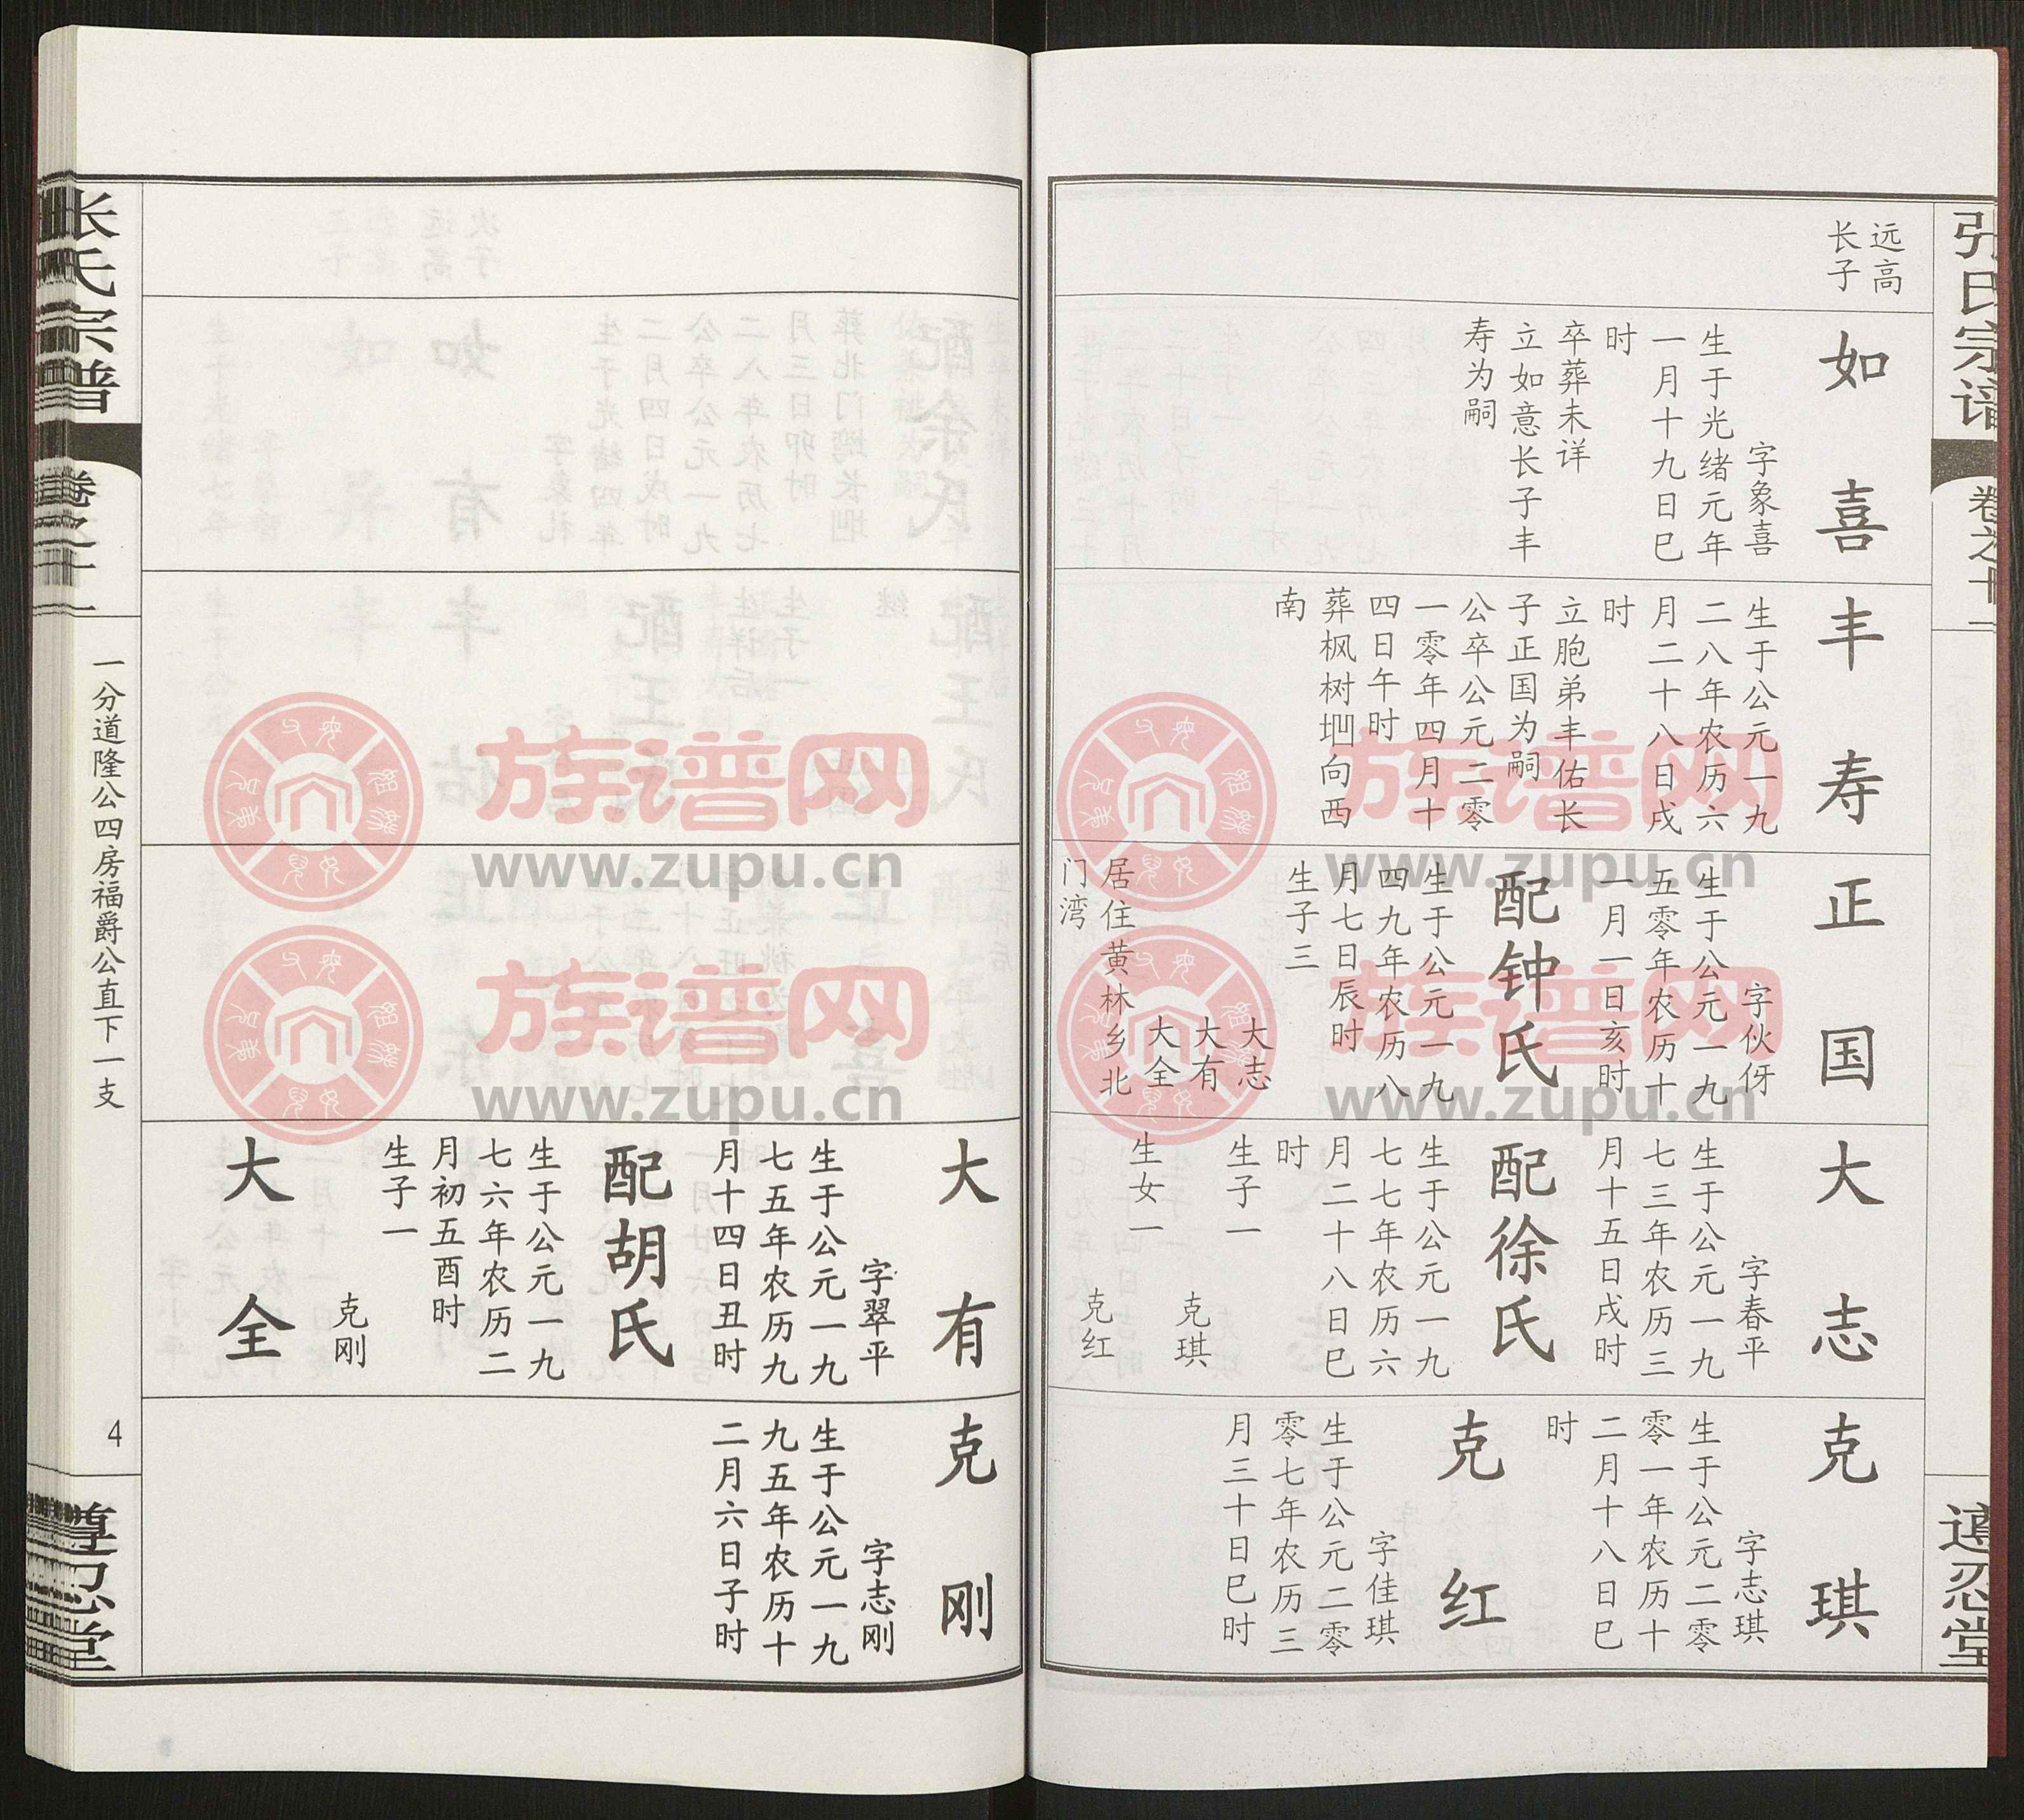 张氏宗谱
卷之十一
遵忍堂
远高
长子
如喜
字象喜
生于光绪元年
一月十九日巳
时
卒葬未详
立如意长子丰
寿为嗣
丰寿
生于公元一九
二八年农历六
月二十八日戌
时
立胞弟丰佑长
子正国为嗣
公卒公元二零
一零年四月十
四日午时
葬枫树坳向西
南
正国
字伙伢
生于公元一九
五零年农历十
一月一日亥时
配钟氏
生于公元一九
四九年农历八
月七日辰时
生子三
大志
大有
大全
居住黄林乡北
门湾
大志
字春平
生于公元一九
七三年农历三
月十五日戌时
配徐氏
生于公元一九
七七年农历六
月二十八日巳
时
生子一
克琪
生女一
克红
克琪
字志琪
生于公元二零
零一年农历十
二月十八日巳
时
克红
字佳琪
生于公元二零
零七年农历三
月三十日巳时
大有
字翠平
生于公元一九
七五年农历九
月十四日丑时
配胡氏
生于公元一九
七六年农历二
月初五酉时
生子一
克刚
大全
克刚
字志刚
生于公元一九
九五年农历十
二月六日子时
张氏宗谱
卷之十一
一分道隆公四房福爵公直下一支
4
遵忍堂
族谱网
www.zupu.cn
族谱网
www.zupu.cn
族谱网
www.zupu.cn
族谱网
www.zupu.cn